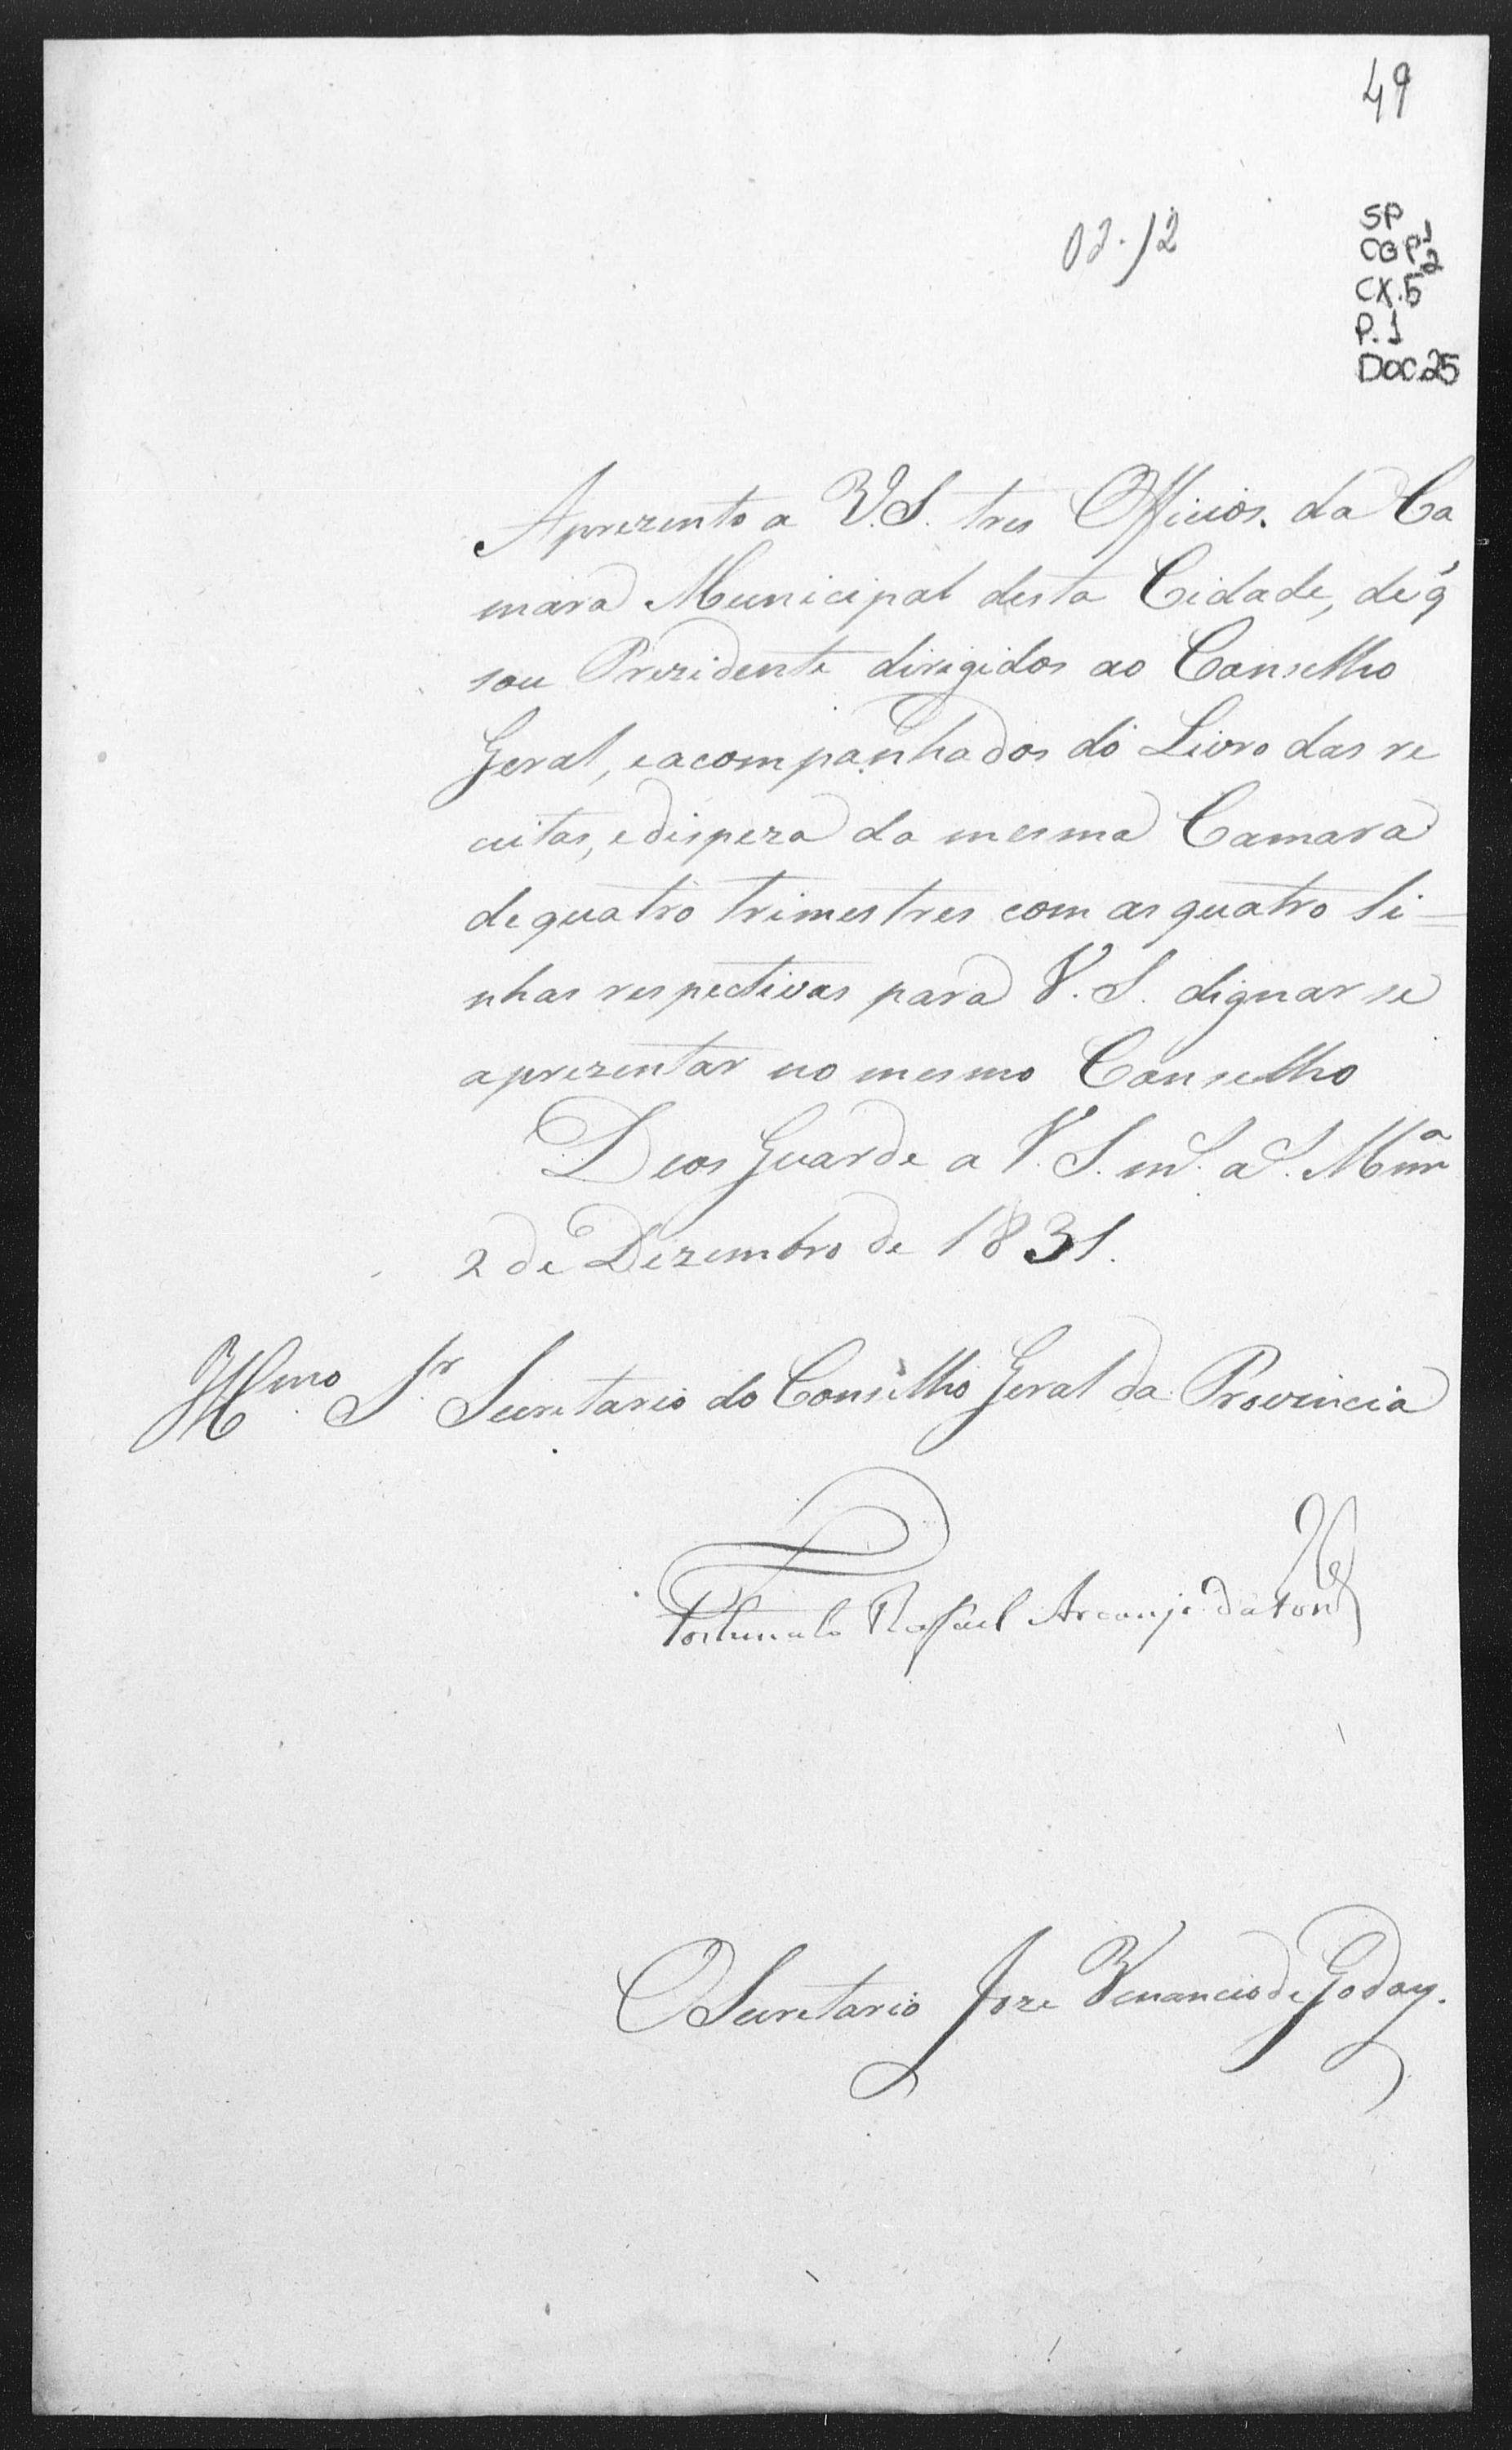 49
02.12
SP
CGP1
2
CX.5
P.1
DOC.25
Aprezento a V.S. tres Officios. da Ca
mara Municipal desta Cidade, de q̃
sou Prezidente dirigidos ao Conselho
Geral, eacompanhados do Livro das re
ceitas, edispeza da mesma Camara
dequatro trimestres com asquatro li=
nhas respectivas para V. S. dignar se
aprezentar no mesmo Conselho
Deos Guarde a V. S. m.s a.s
2 de Dezembro de 1831.
Illmo. Sr. Secretario do Conselho Geral da Provincia
Fortunato Rafael Arcanjo da Fonca
OSecretario Joze Venancio de Godoy.